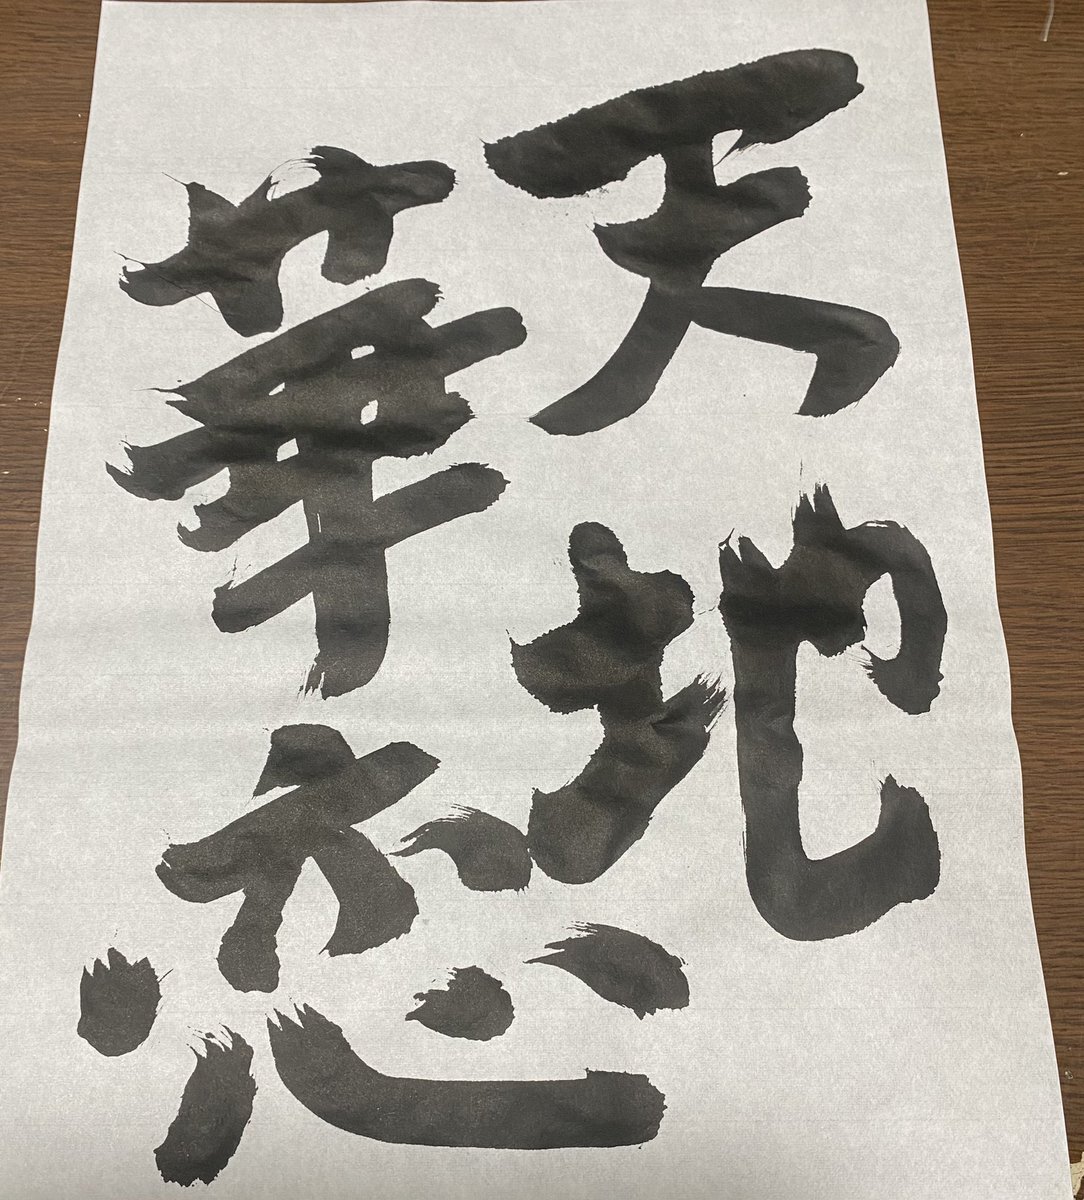 天地
華恋